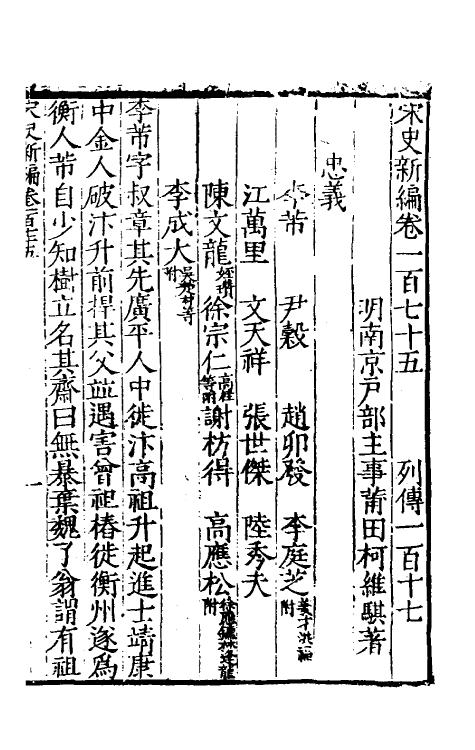 宋史新編卷一百七十五　列傳一百十七
明南京戸部主事莆田柯維騏著
忠義
李芾　尹穀　趙卯發　李庭芝姜才洪福附
江萬里　文天祥　張世傑　陸秀夫
陳文龍　徐宗仁　謝枋得　高應松
李成大
李芾字叔章其先廣平人中徙汴高祖升起進士靖康
中金人破汴升前捍其父並遇害曾祖椿徙衡州遂爲
衡人芾自少知樹立名其齋曰無暴棄魏了翁謂有祖
宋史新編卷一百七十五
一